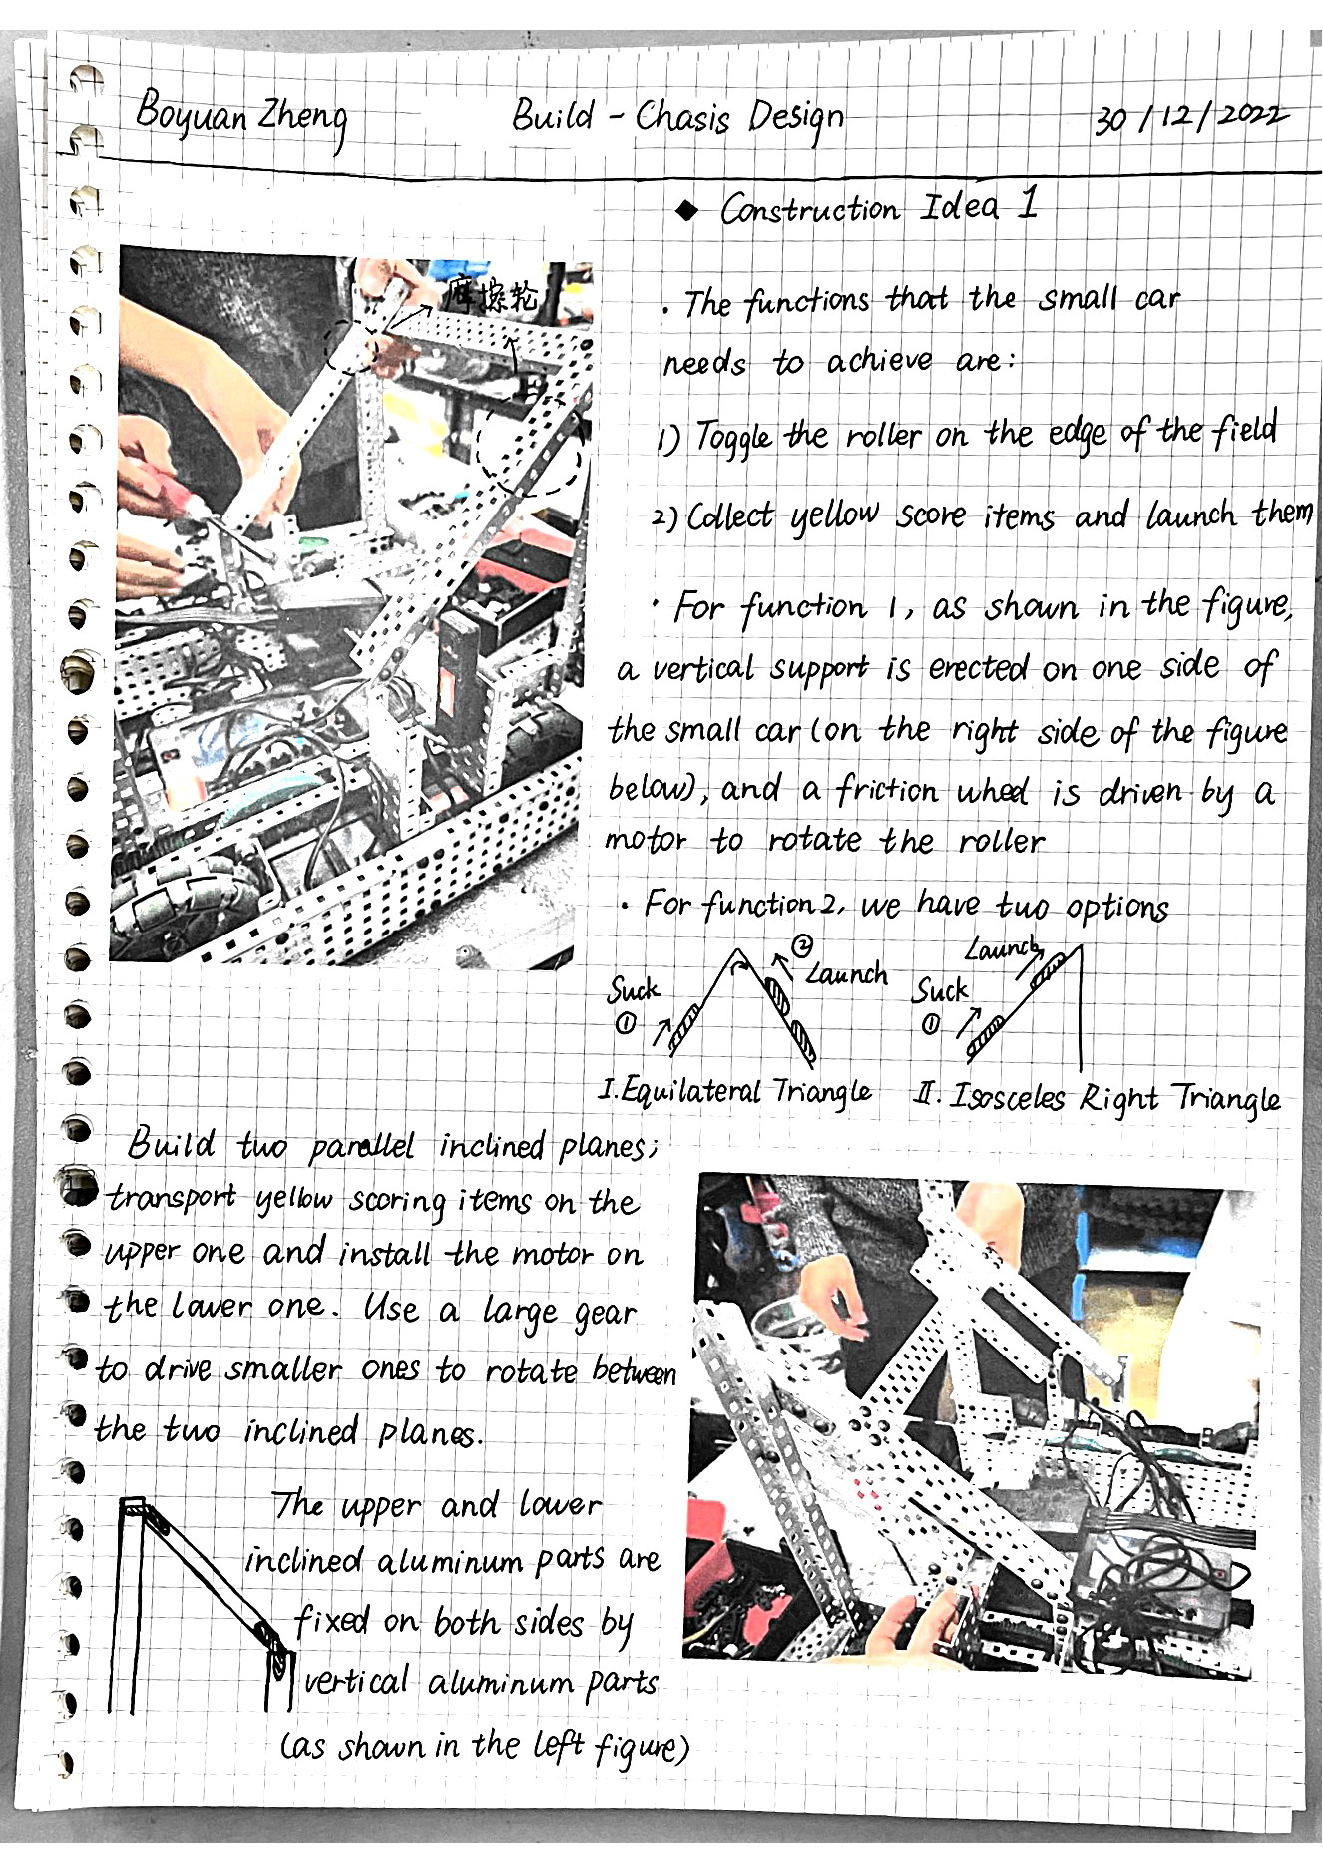 Boyuan Zheng
Build - Chasis Design
30/12/2022
◆ Construction Idea 1
摩擦轮
· The functions that the small car
needs to achieve are:
1) Toggle the roller on the edge of the field
2) Collect yellow score items and launch them
· For function 1, as shown in the figure,
a vertical support is erected on one side of
the small car (on the right side of the figure
below), and a friction wheel is driven by a
motor to rotate the roller
· For function 2, we have two options
Suck
①
②
Launch
I. Equilateral Triangle
Launch
Suck
①
II. Isosceles Right Triangle
Build two parallel inclined planes;
transport yellow scoring items on the
upper one and install the motor on
the lower one. Use a large gear
to drive smaller ones to rotate between
the two inclined planes.
The upper and lower
inclined aluminum parts are
fixed on both sides by
vertical aluminum parts
(as shown in the left figure)